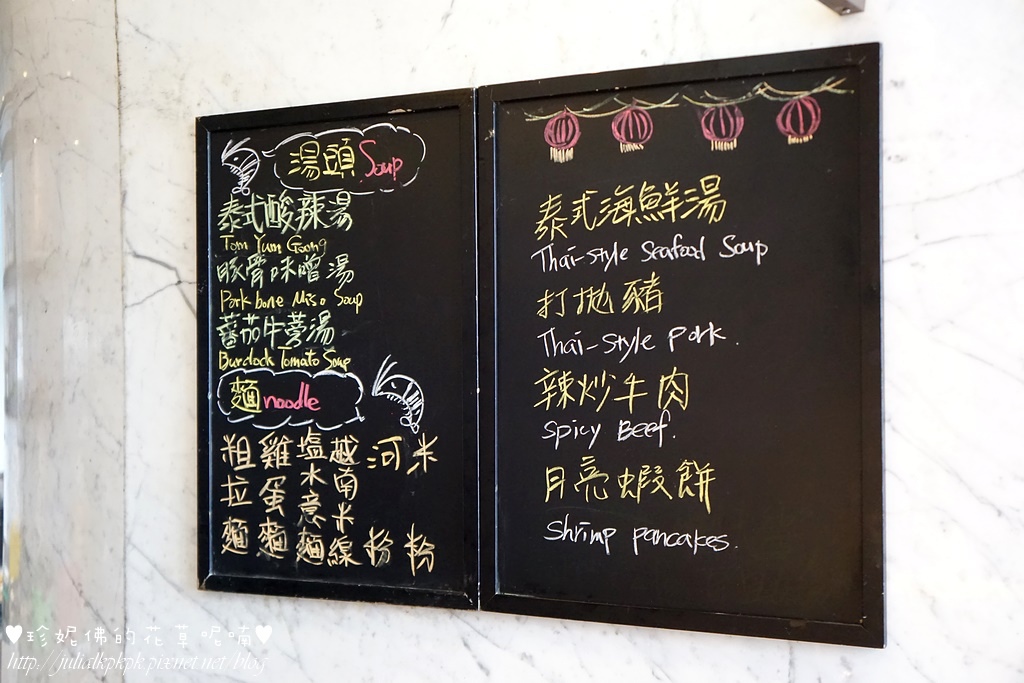 湯頭 Soup
泰式酸辣湯
Tom Yum Goong
豚骨味噌湯
Pork bone Miso Soup
蕃茄牛蒡湯
Burdock Tomato Soup
麵 noodle
粗拉麵
雞蛋麵
塩水意麵
越南米線
河粉
米粉
泰式海鮮湯
Thai-style Seafood Soup
打拋豬
Thai-style Pork.
辣炒牛肉
Spicy Beef.
月亮蝦餅
Shrimp pancakes.
♥珍妮佛的花草呢喃♥
http://julialkpkpk.pixnet.net/blog